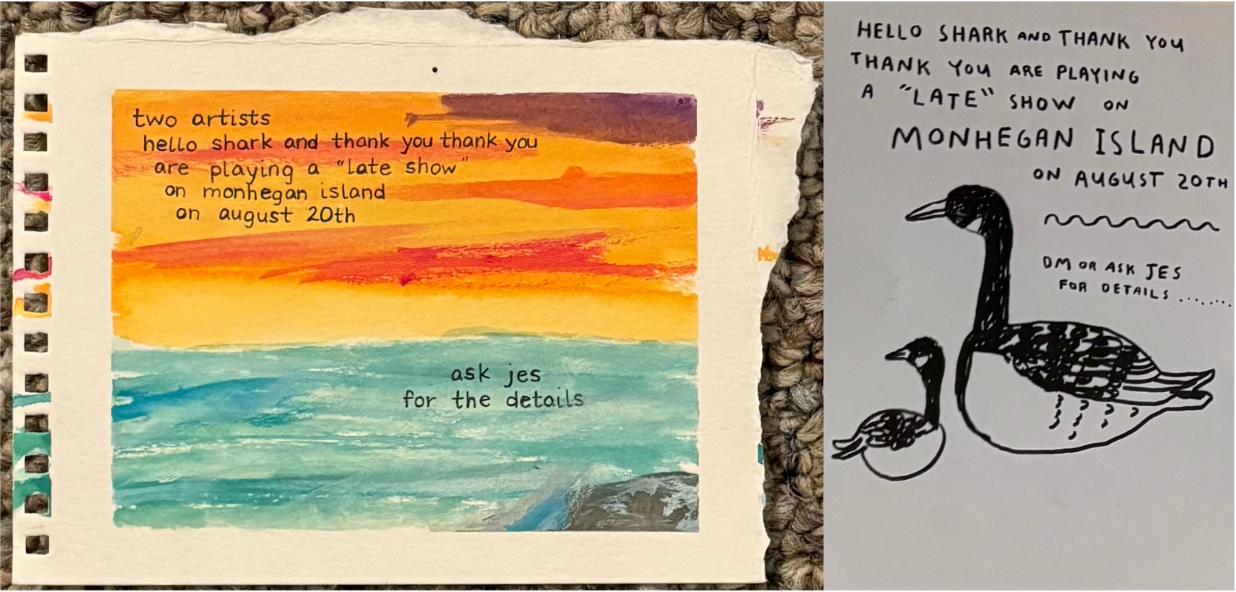 two artists
hello shark and thank you thank you
are playing a "late show"
on monhegan island
on august 20th
ask jes
for the details
HELLO SHARK AND THANK YOU
THANK YOU ARE PLAYING
A "LATE" SHOW ON
MONHEGAN ISLAND
ON AUGUST 20TH
DM OR ASK JES
FOR DETAILS ........